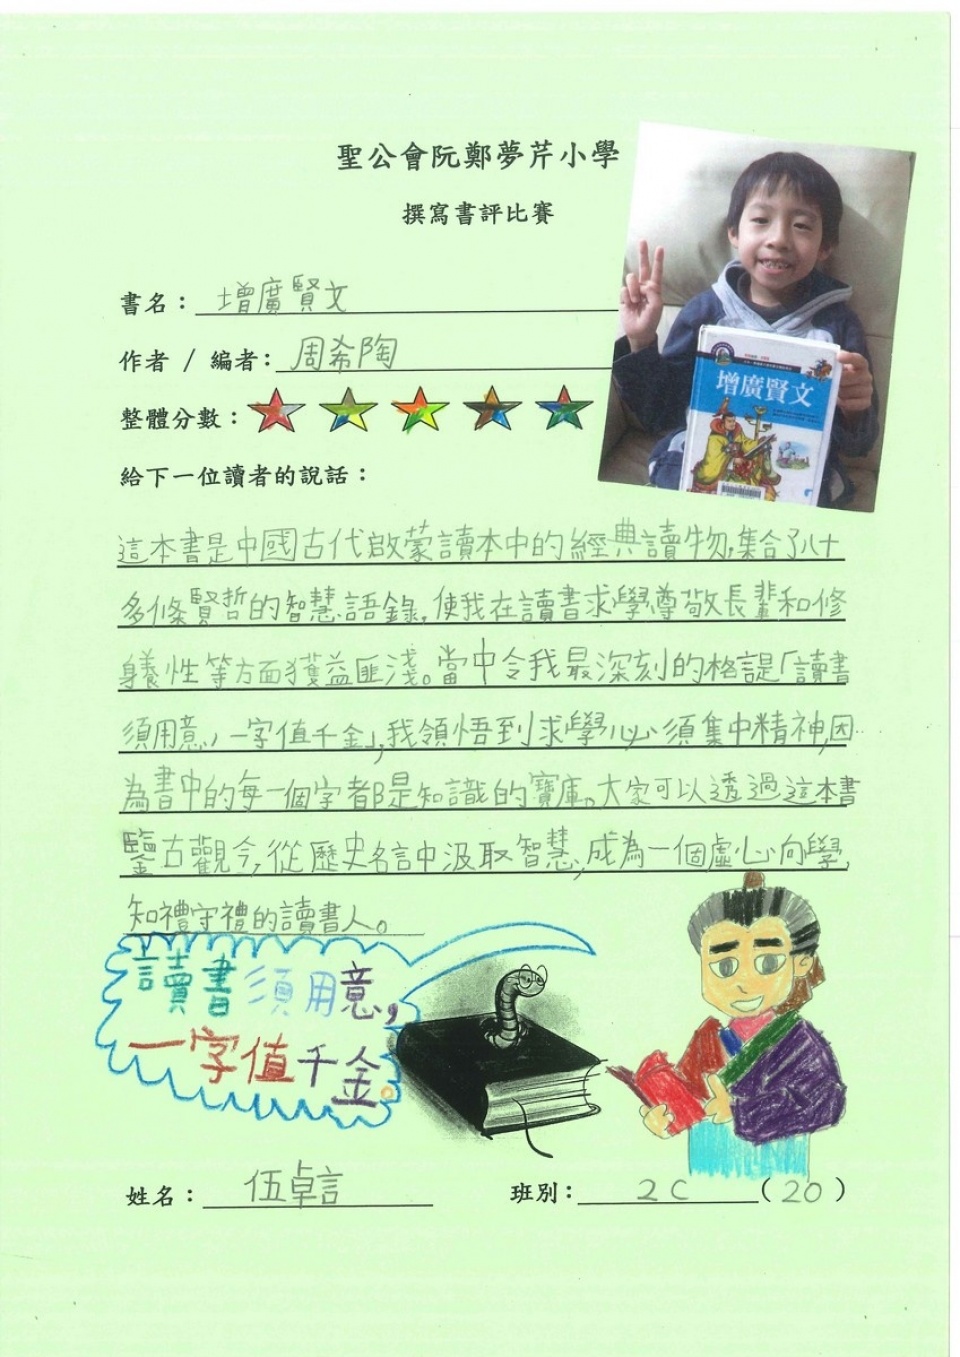 聖公會阮鄭夢芹小學
撰寫書評比賽
書名：增廣賢文
作者 / 編者：周希陶
整體分數：
給下一位讀者的說話：
增廣賢文
這本書是中國古代啟蒙讀本中的經典讀物,集合了八十
多條賢哲的智慧語錄,使我在讀書求學尊敬長輩和修
身養性等方面獲益匪淺。當中令我最深刻的格言是「讀書
須用意,一字值千金」,我領悟到求學必須集中精神,因
為書中的每一個字都是知識的寶庫。大家可以透過這本書
鑒古觀今,從歷史名言中汲取智慧,成為一個虛心向學,
知禮守禮的讀書人。
讀書須用意,
一字值千金。
姓名：伍卓言
班別：2C (20)